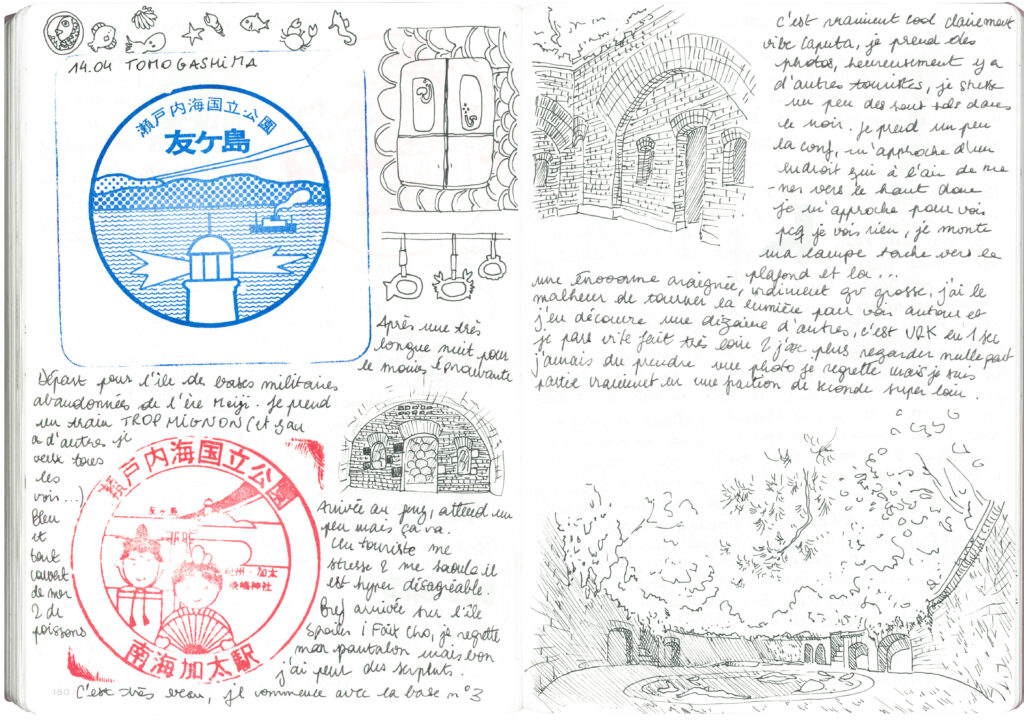 14.04 TOMOGASHIMA
瀬戸内海国立公園
友ケ島
Après une très
longue nuit pour
le moins éprouvante
Départ pour l'île de bases militaires
abandonnées de l'ère Meiji. Je prend
un train TROP MIGNON (et y en
a d'autres je
veux tous
les
voir...)
bleu
et
tout
couvert
de mer
2 de
poissons
瀬戸内海国立公園
友ヶ島
紀州・加太
淡嶋神社
南海加太駅
Arrivée au
attend un
peu mais ça va.
Un touriste me
stresse 2 me saoule il
est hyper désagréable.
Bref arrivée sur l'île
spoiler i fait cho, je regrette
mon pantalon mais bon
j'ai peur des serpents.
180
C'est très beau, je commence avec la base n°3
c'est vraiment cool clairement
vibe Laputa, je prend des
photos, heureusement y a
d'autres touristes, je stresse
un peu des sons tds dans
le noir. Je prend un peu
la conf, m'approche d'un
endroit qui à l'air de me
-ner vers le haut donc
je m'approche pour voir
pcq je vois rien, je monte
ma lampe torche vers le
plafond et la...
une énooorme araignée, vraiment gv grosse, j'ai le
malheur de tourner la lumière pour voir autour et
j'en découvre une dizaine d'autres, c'est VRK en 1 sec
je pars vite fait très loin 2 j'ose plus regarder nulle part
j'aurais du prendre une photo je regrette mais je suis
partie vraiment en une fraction de seconde super loin.